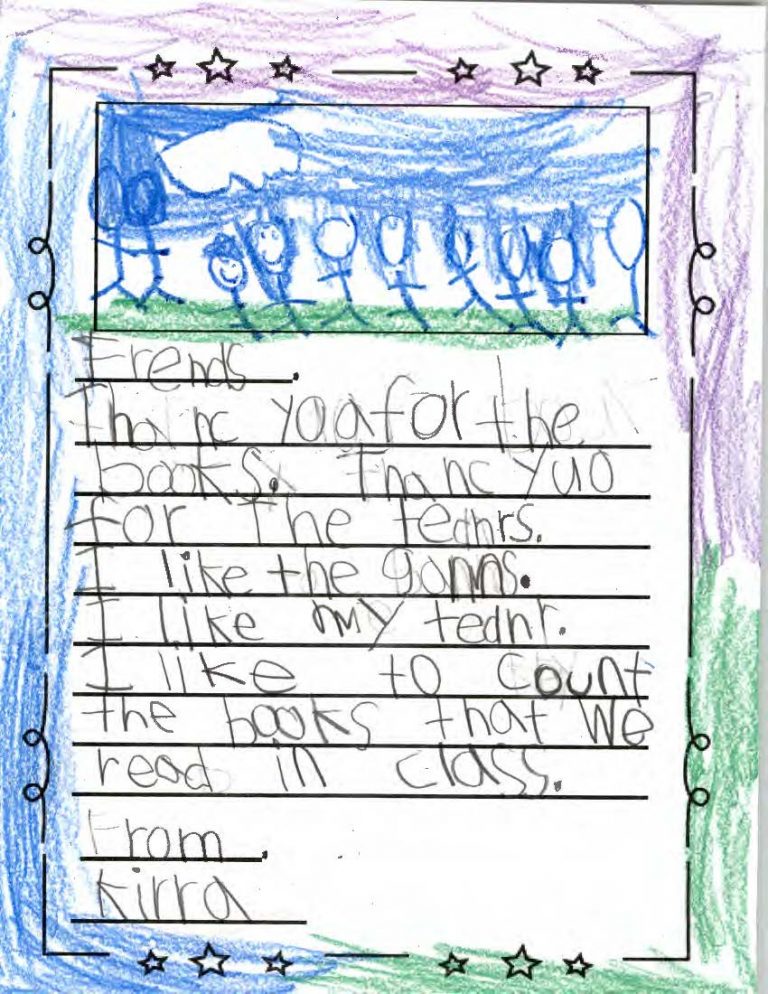 Frends,
Thanc yoa for the
books. Thanc yuo
for The teahrs.
I like the
I like my teahr.
I like to Count
the books that We
read in class.
From,
Kirra